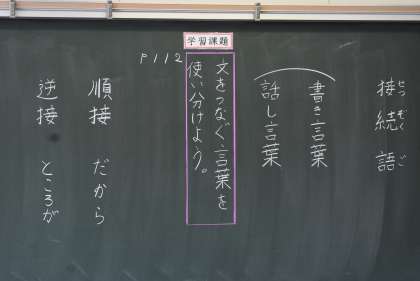 接続語
せつぞくご
書き言葉
話し言葉
学習課題
文をつなぐ言葉を
使い分けよう。
P112
順接 だから
逆接 ところが